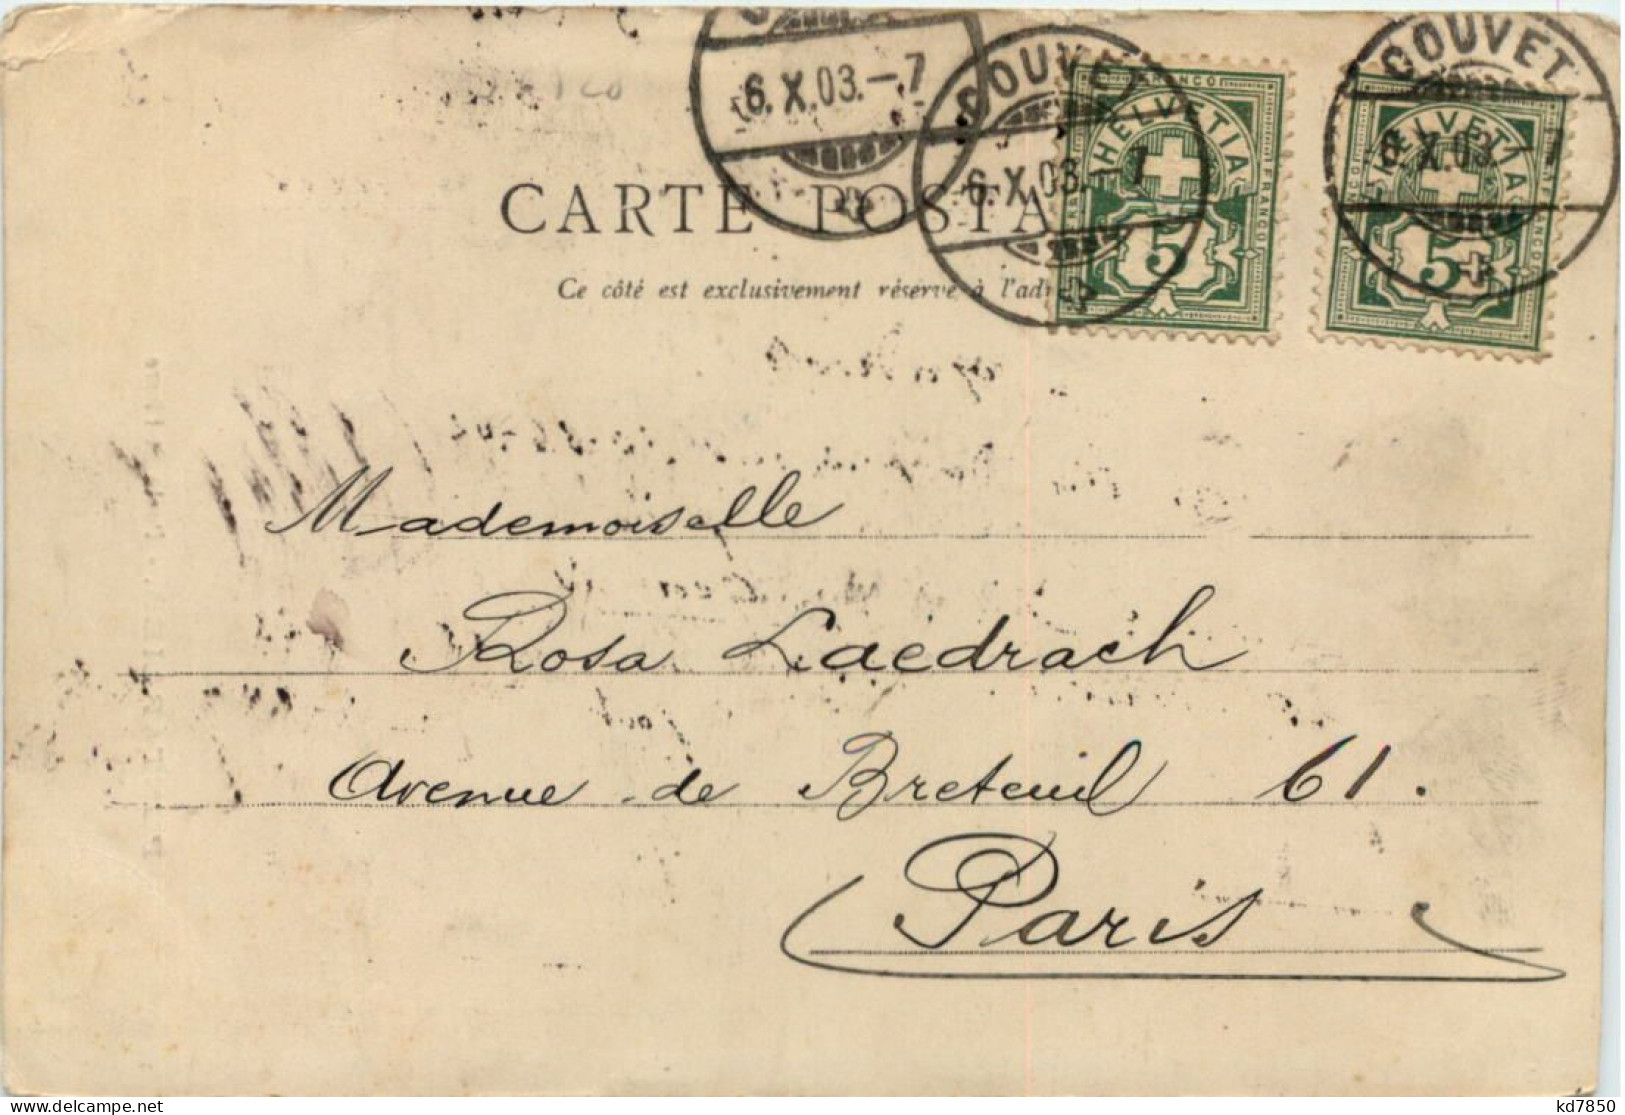 6.X.03.-7
COUVET
6.X.03.-7
COUVET
6.X.03.-7
FRANCO
HELVETIA
FRANCO
5
FRANCO
HELVETIA
FRANCO
5
CARTE POSTA
Ce côté est exclusivement réservé à l'ad
Mademoiselle
Rosa Laedrach
Avenue de Breteuil 61.
Paris
delcampe.net
kd7850